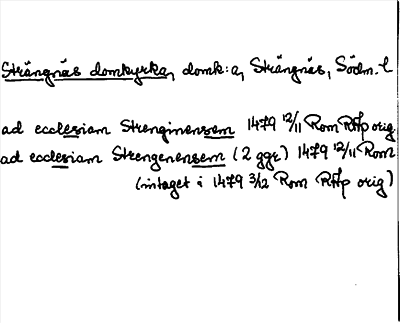 Strängnäs domkyrka, domk:a, Strängnäs, Södm. l
ad ecclesiam Strenginensem 1479 12/11 Rom RAp orig
ad ecclesiam Strengenensem (2 ggr) 1479 12/11 Rom
(intaget i 1479 3/12 Rom RAp orig)